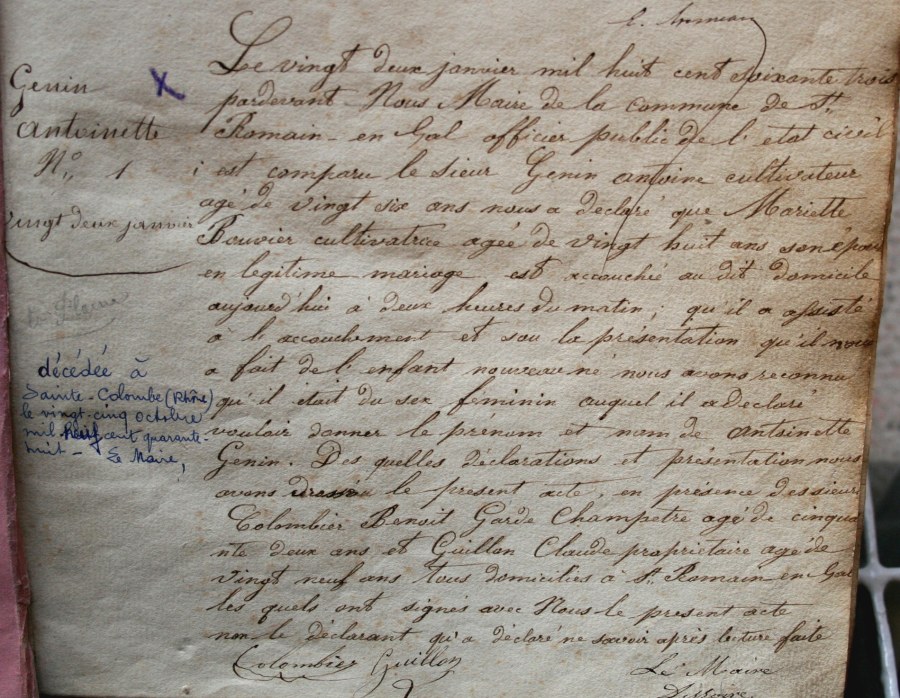 Genin
Antoinette
N° 1
vingt deux janvier
décédée à
Sainte-Colombe (Rhône)
le vingt-cinq octobre
mil neuf cent quarante-
huit - Le Maire,
Le vingt deux janvier mil huit cent soixante trois
pardevant Nous Maire de la commune de St
Romain-en Gal officier public de l'etat civil
; est comparu le sieur Genin antoine cultivateur
agé de vingt six ans nous a declaré que Mariette
Bouvier cultivatrice agée de vingt huit ans son épouse
en legitime mariage est accouchée au dit domicile
aujourd'hui à deux heures du matin; qu'il a assisté
à l'accouchement et sur la présentation qu'il nous
a fait de l'enfant nouveau né nous avons reconnu
qu'il était du sex feminin auquel il a declaré
vouloir donner le prénom et nom de Antoinette
Genin. Des quelles déclarations et présentation nous
avons dressé le present acte, en présence des sieurs
Colombier Benoit Garde Champetre agé de cinqua
nte deux ans et Guillon Claude propriétaire agé de
vingt neuf ans tous domiciliés à St Romain en Gal
les quels ont signés avec Nous le present acte
non le déclarant qu'a déclaré ne savoir après lecture faite
Colombier Guillon
Le Maire